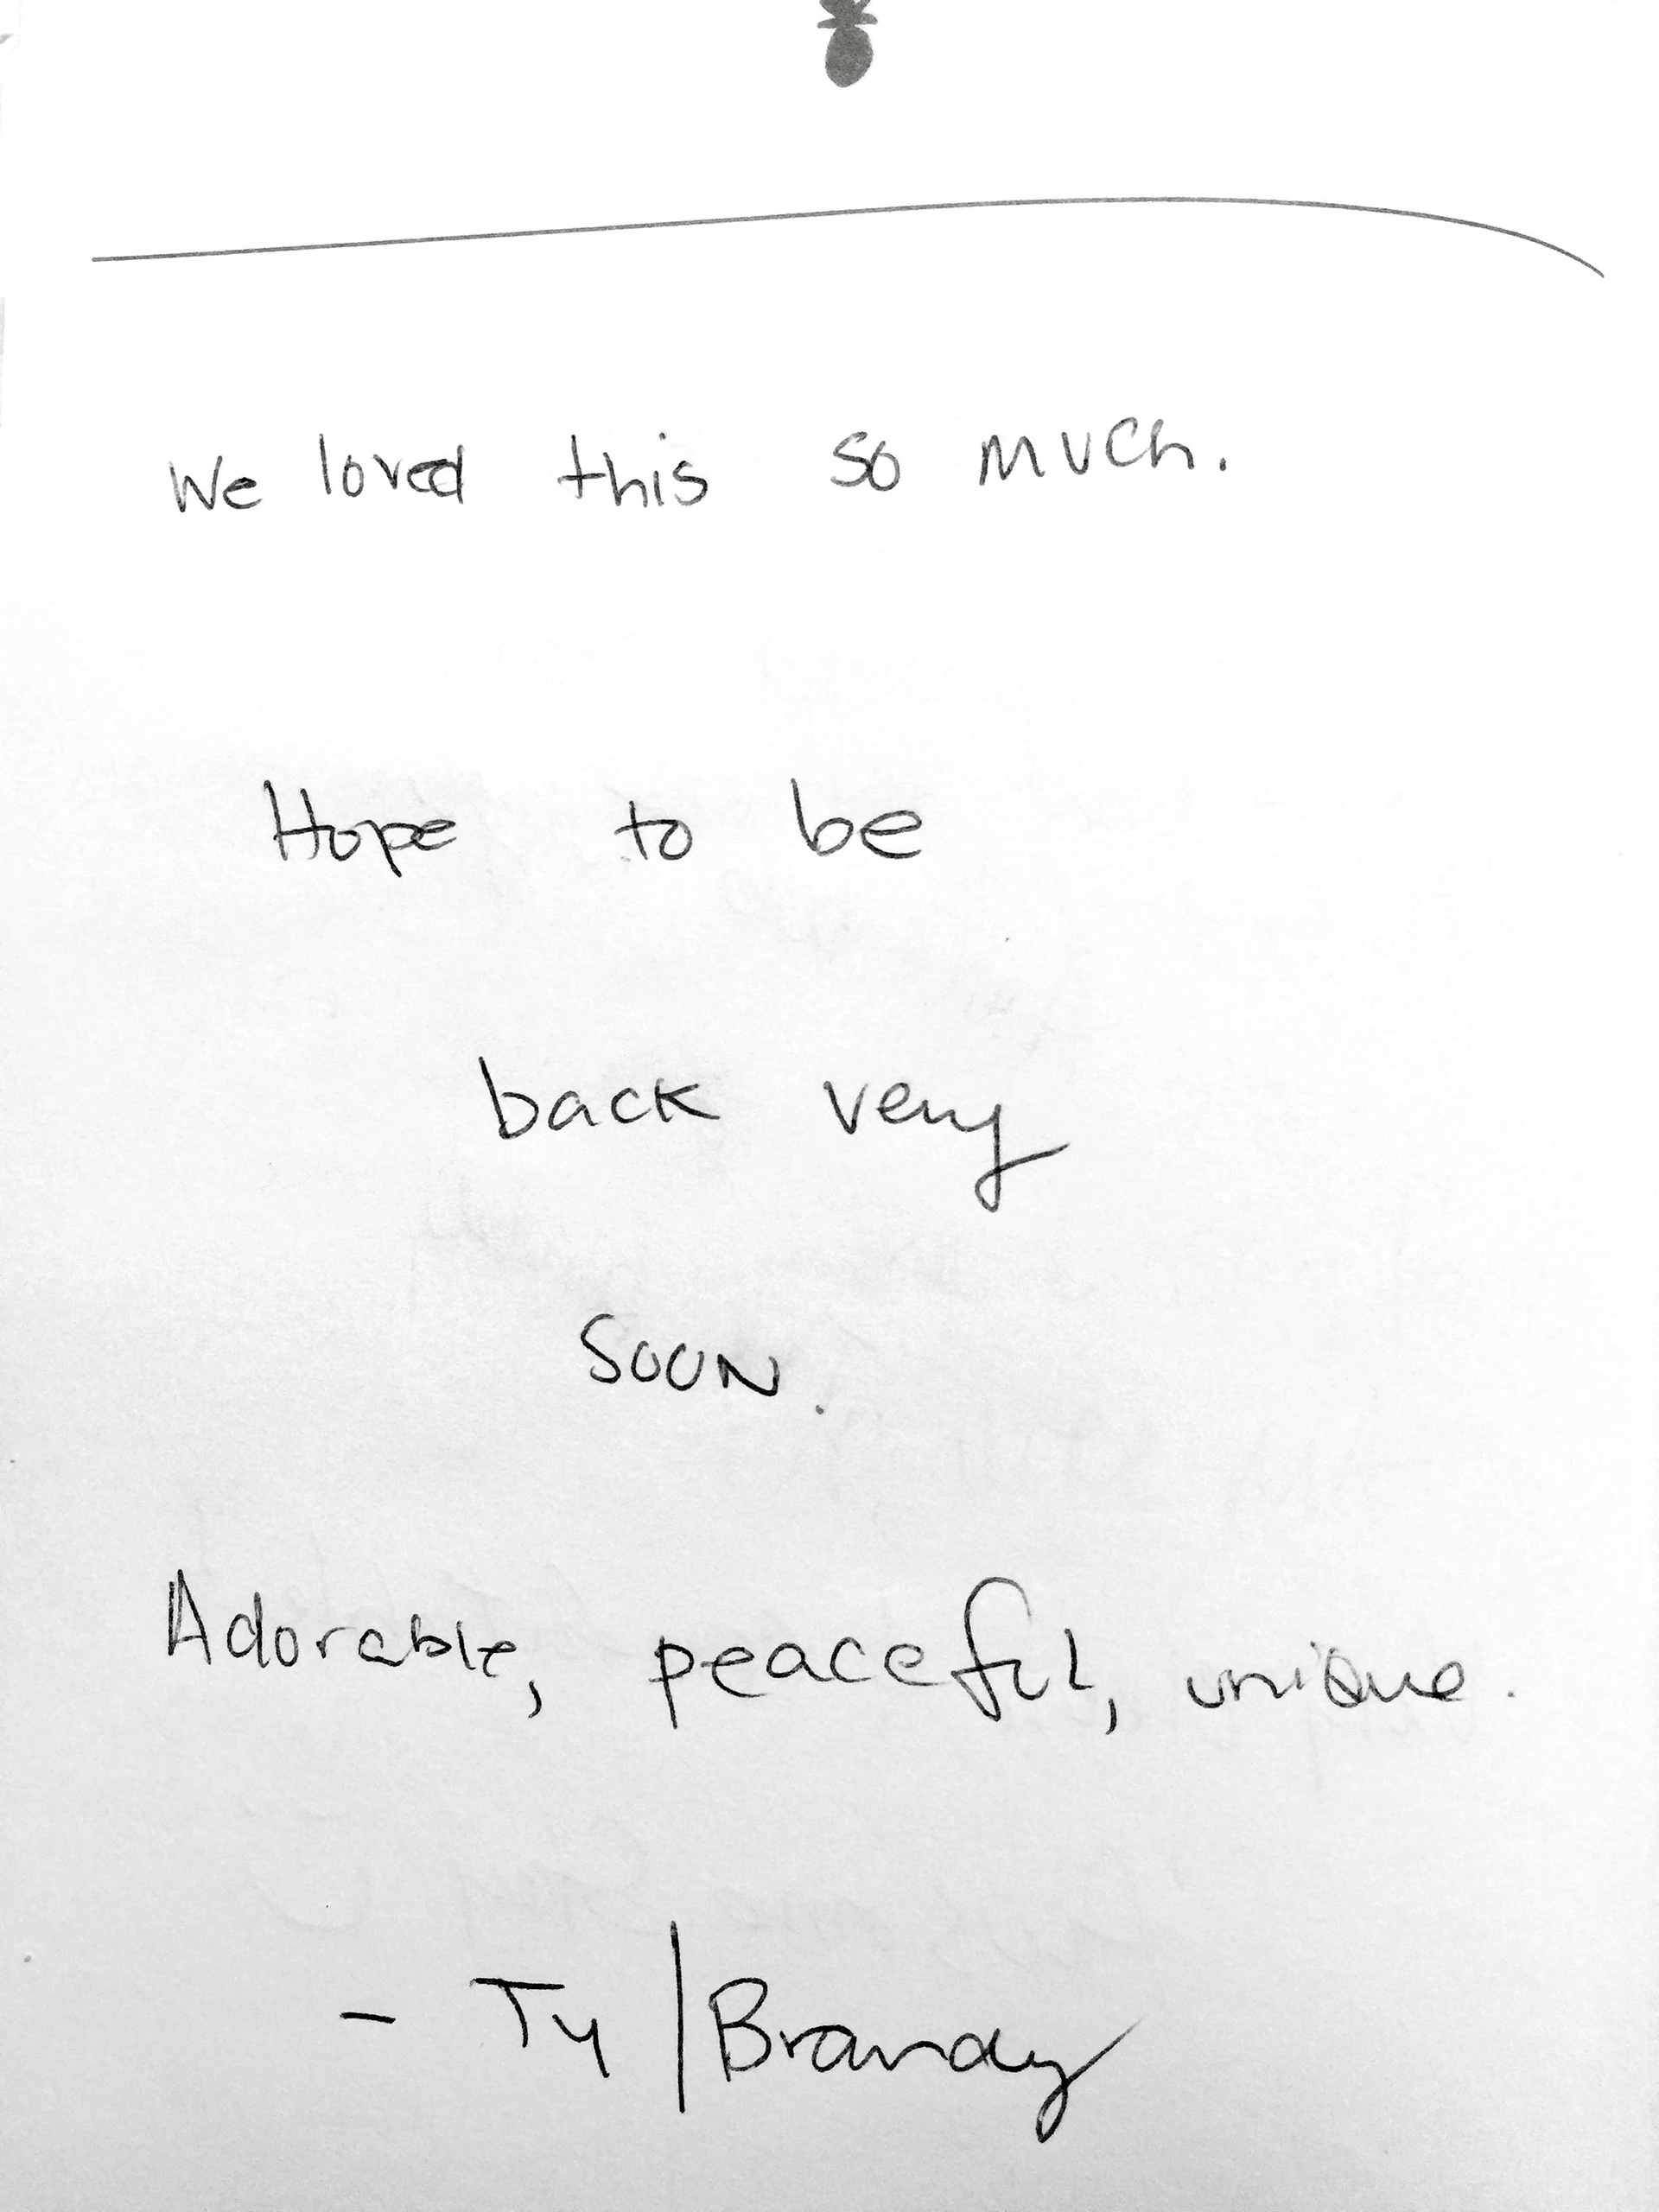 We loved this so much.
Hope to be
back very
soon.
Adorable, peaceful, unique.
- Ty / Brandy